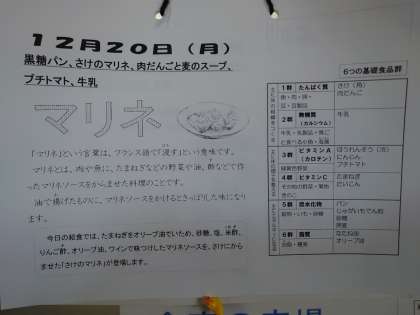 12月20日（月）
黒糖パン、さけのマリネ、肉だんごと麦のスープ、
プチトマト、牛乳
マリネ
「マリネ」という言葉は、フランス語で「浸す」という意味です。
マリネとは、肉や魚に、たまねぎなどの野菜や油、酢などで作
ったマリネソースをからませた料理のことです。
油で揚げたものに、マリネソースをかけるとさっぱりした味になり
ます。
今日の給食では、たまねぎをオリーブ油でいため、砂糖、塩、米酢、
りんご酢、オリーブ油、ワインで味つけしたマリネソースを、さけにから
ませた「さけのマリネ」が登場します。
6つの基礎食品群
1群 たんぱく質
さけ（角）
肉だんご
2群 無機質
（カルシウム）
牛乳
3群 ビタミンA
（カロテン）
緑黄色野菜
ほうれんそう（冷）
にんじん
プチトマト
4群 ビタミンC
その他の野菜・果物
きのこ
たまねぎ
だいこん
5群 炭水化物
穀物・いも・砂糖
パン
じゃがいもでん粉
砂糖
押麦
6群 脂質
油脂・種実
なたね油
オリーブ油